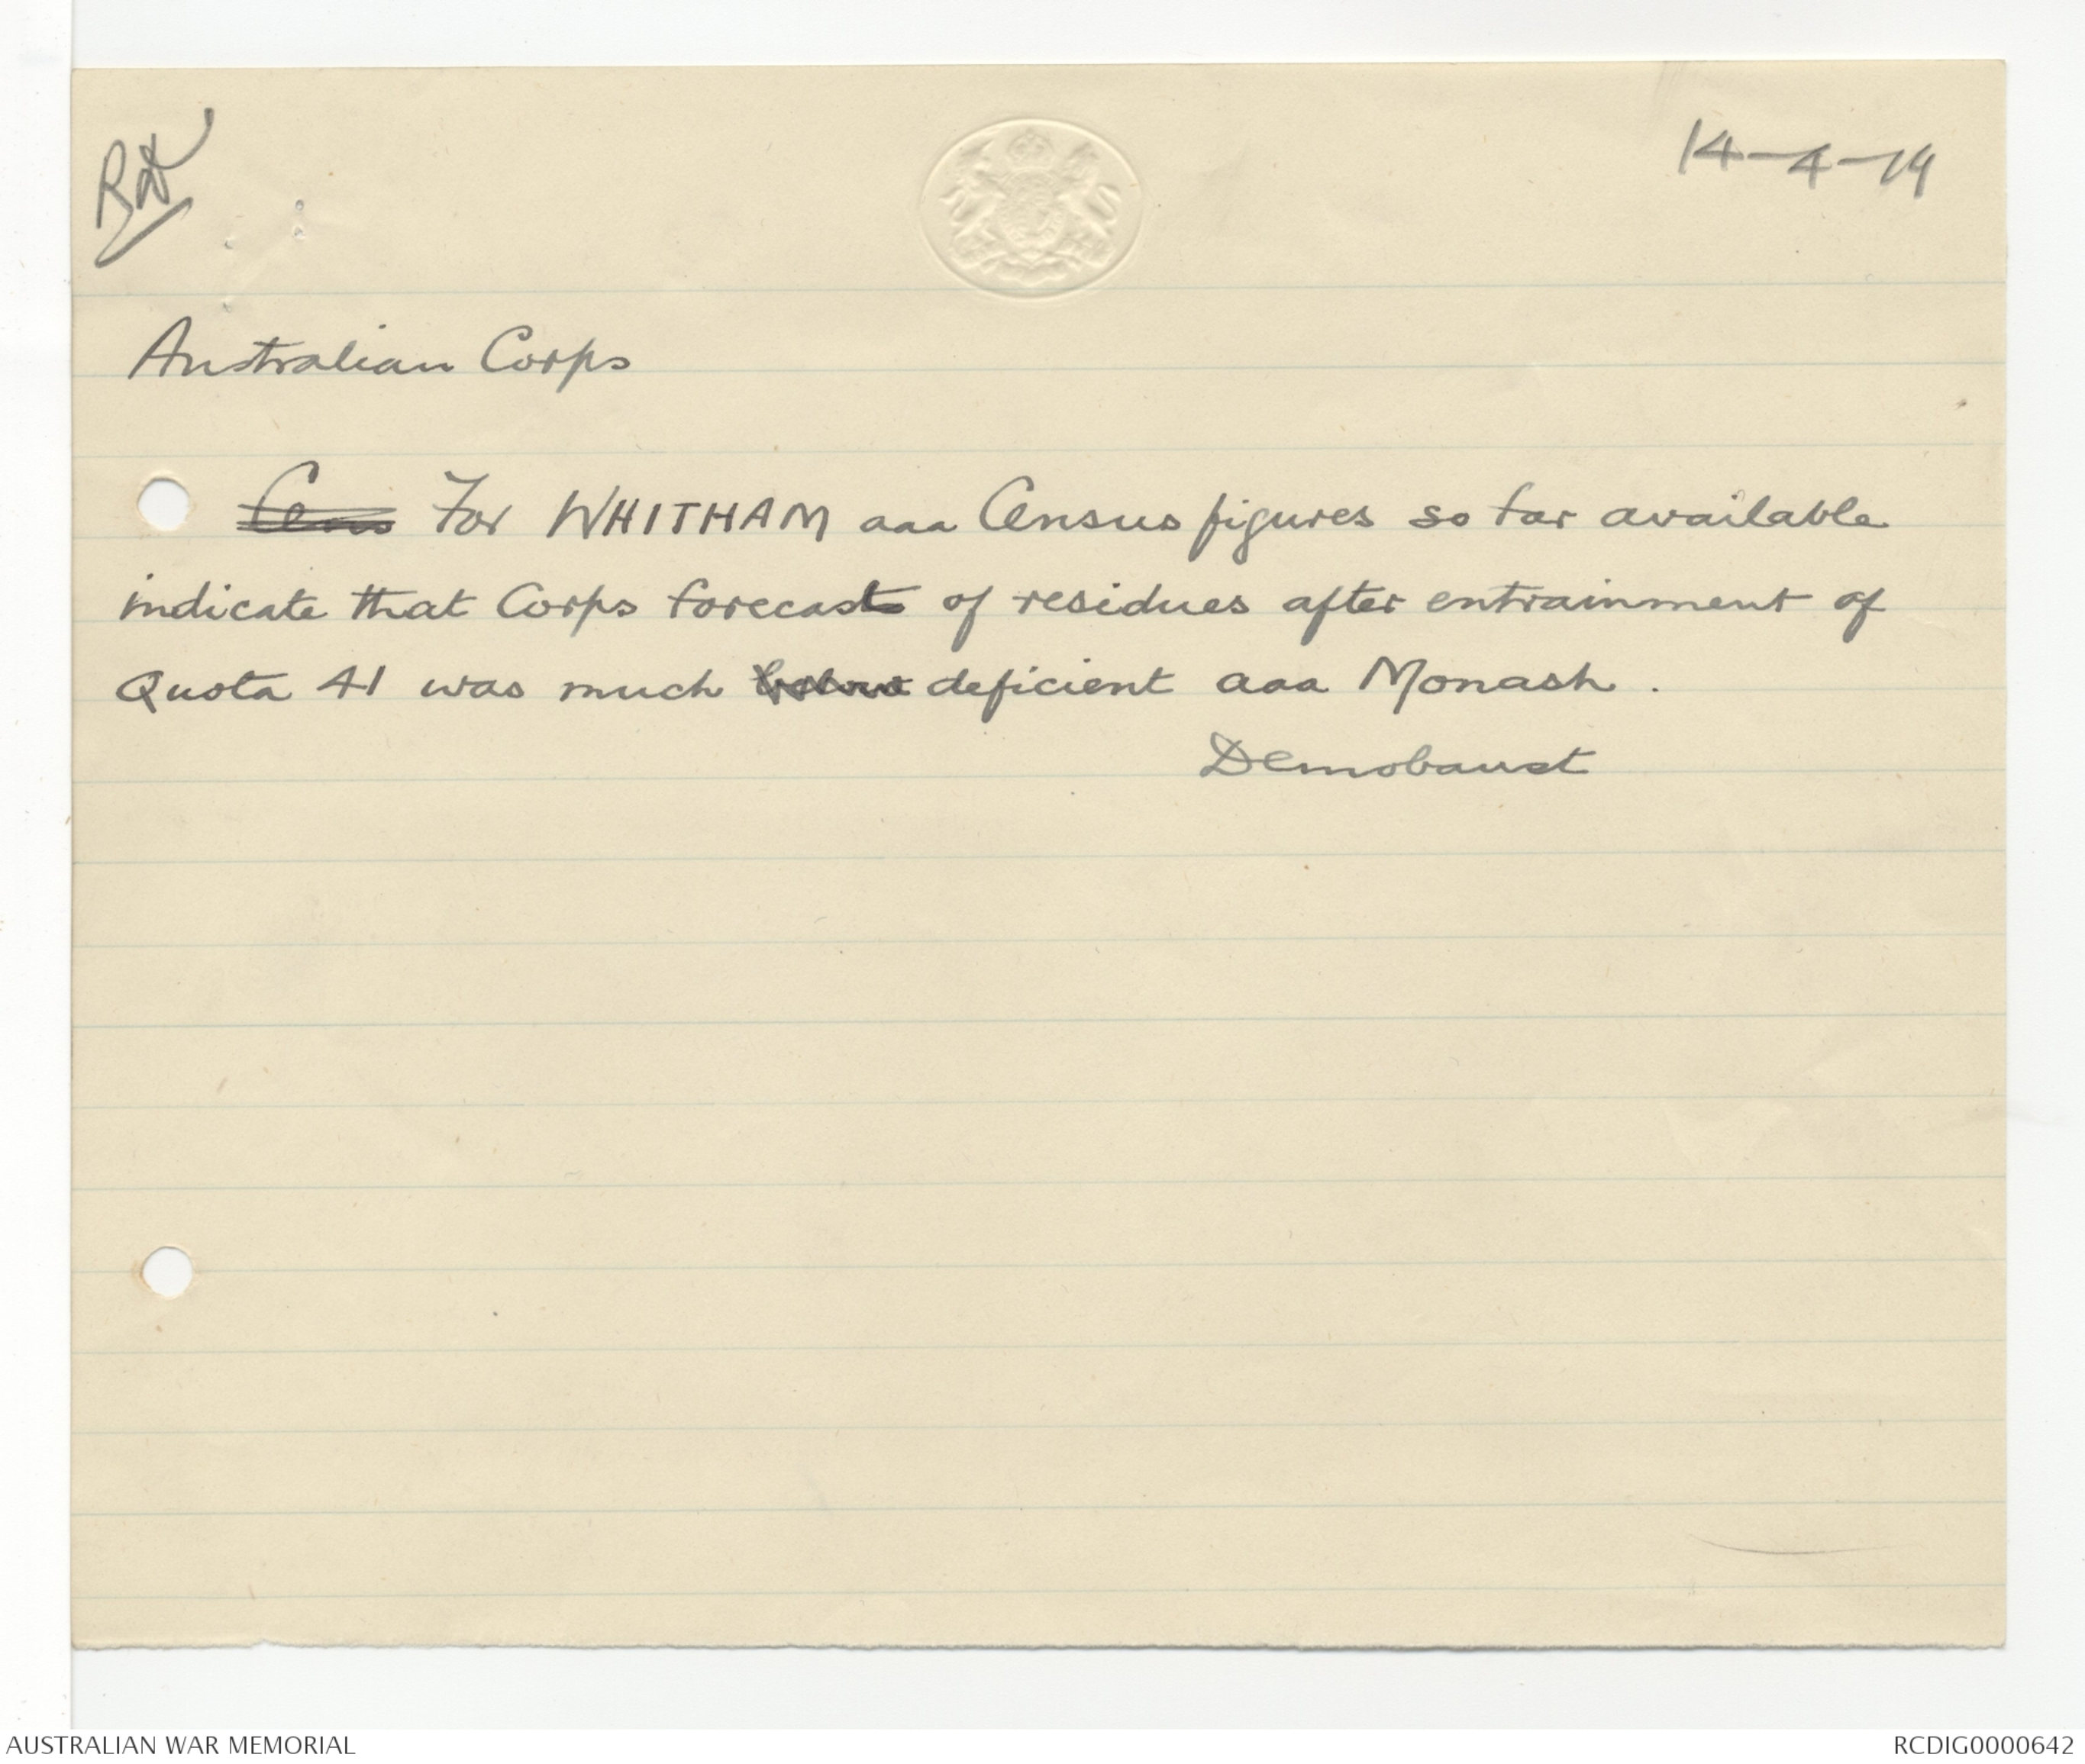 14-4-19
Australian Corps
Cens For WHITHAM aaa Census figures so far available
indicate that Corps forecast of residues after entrainment of
Quota 41 was much below deficient aaa Monash.
Demobaust
AUSTRALIAN WAR MEMORIAL
RCDIG0000642